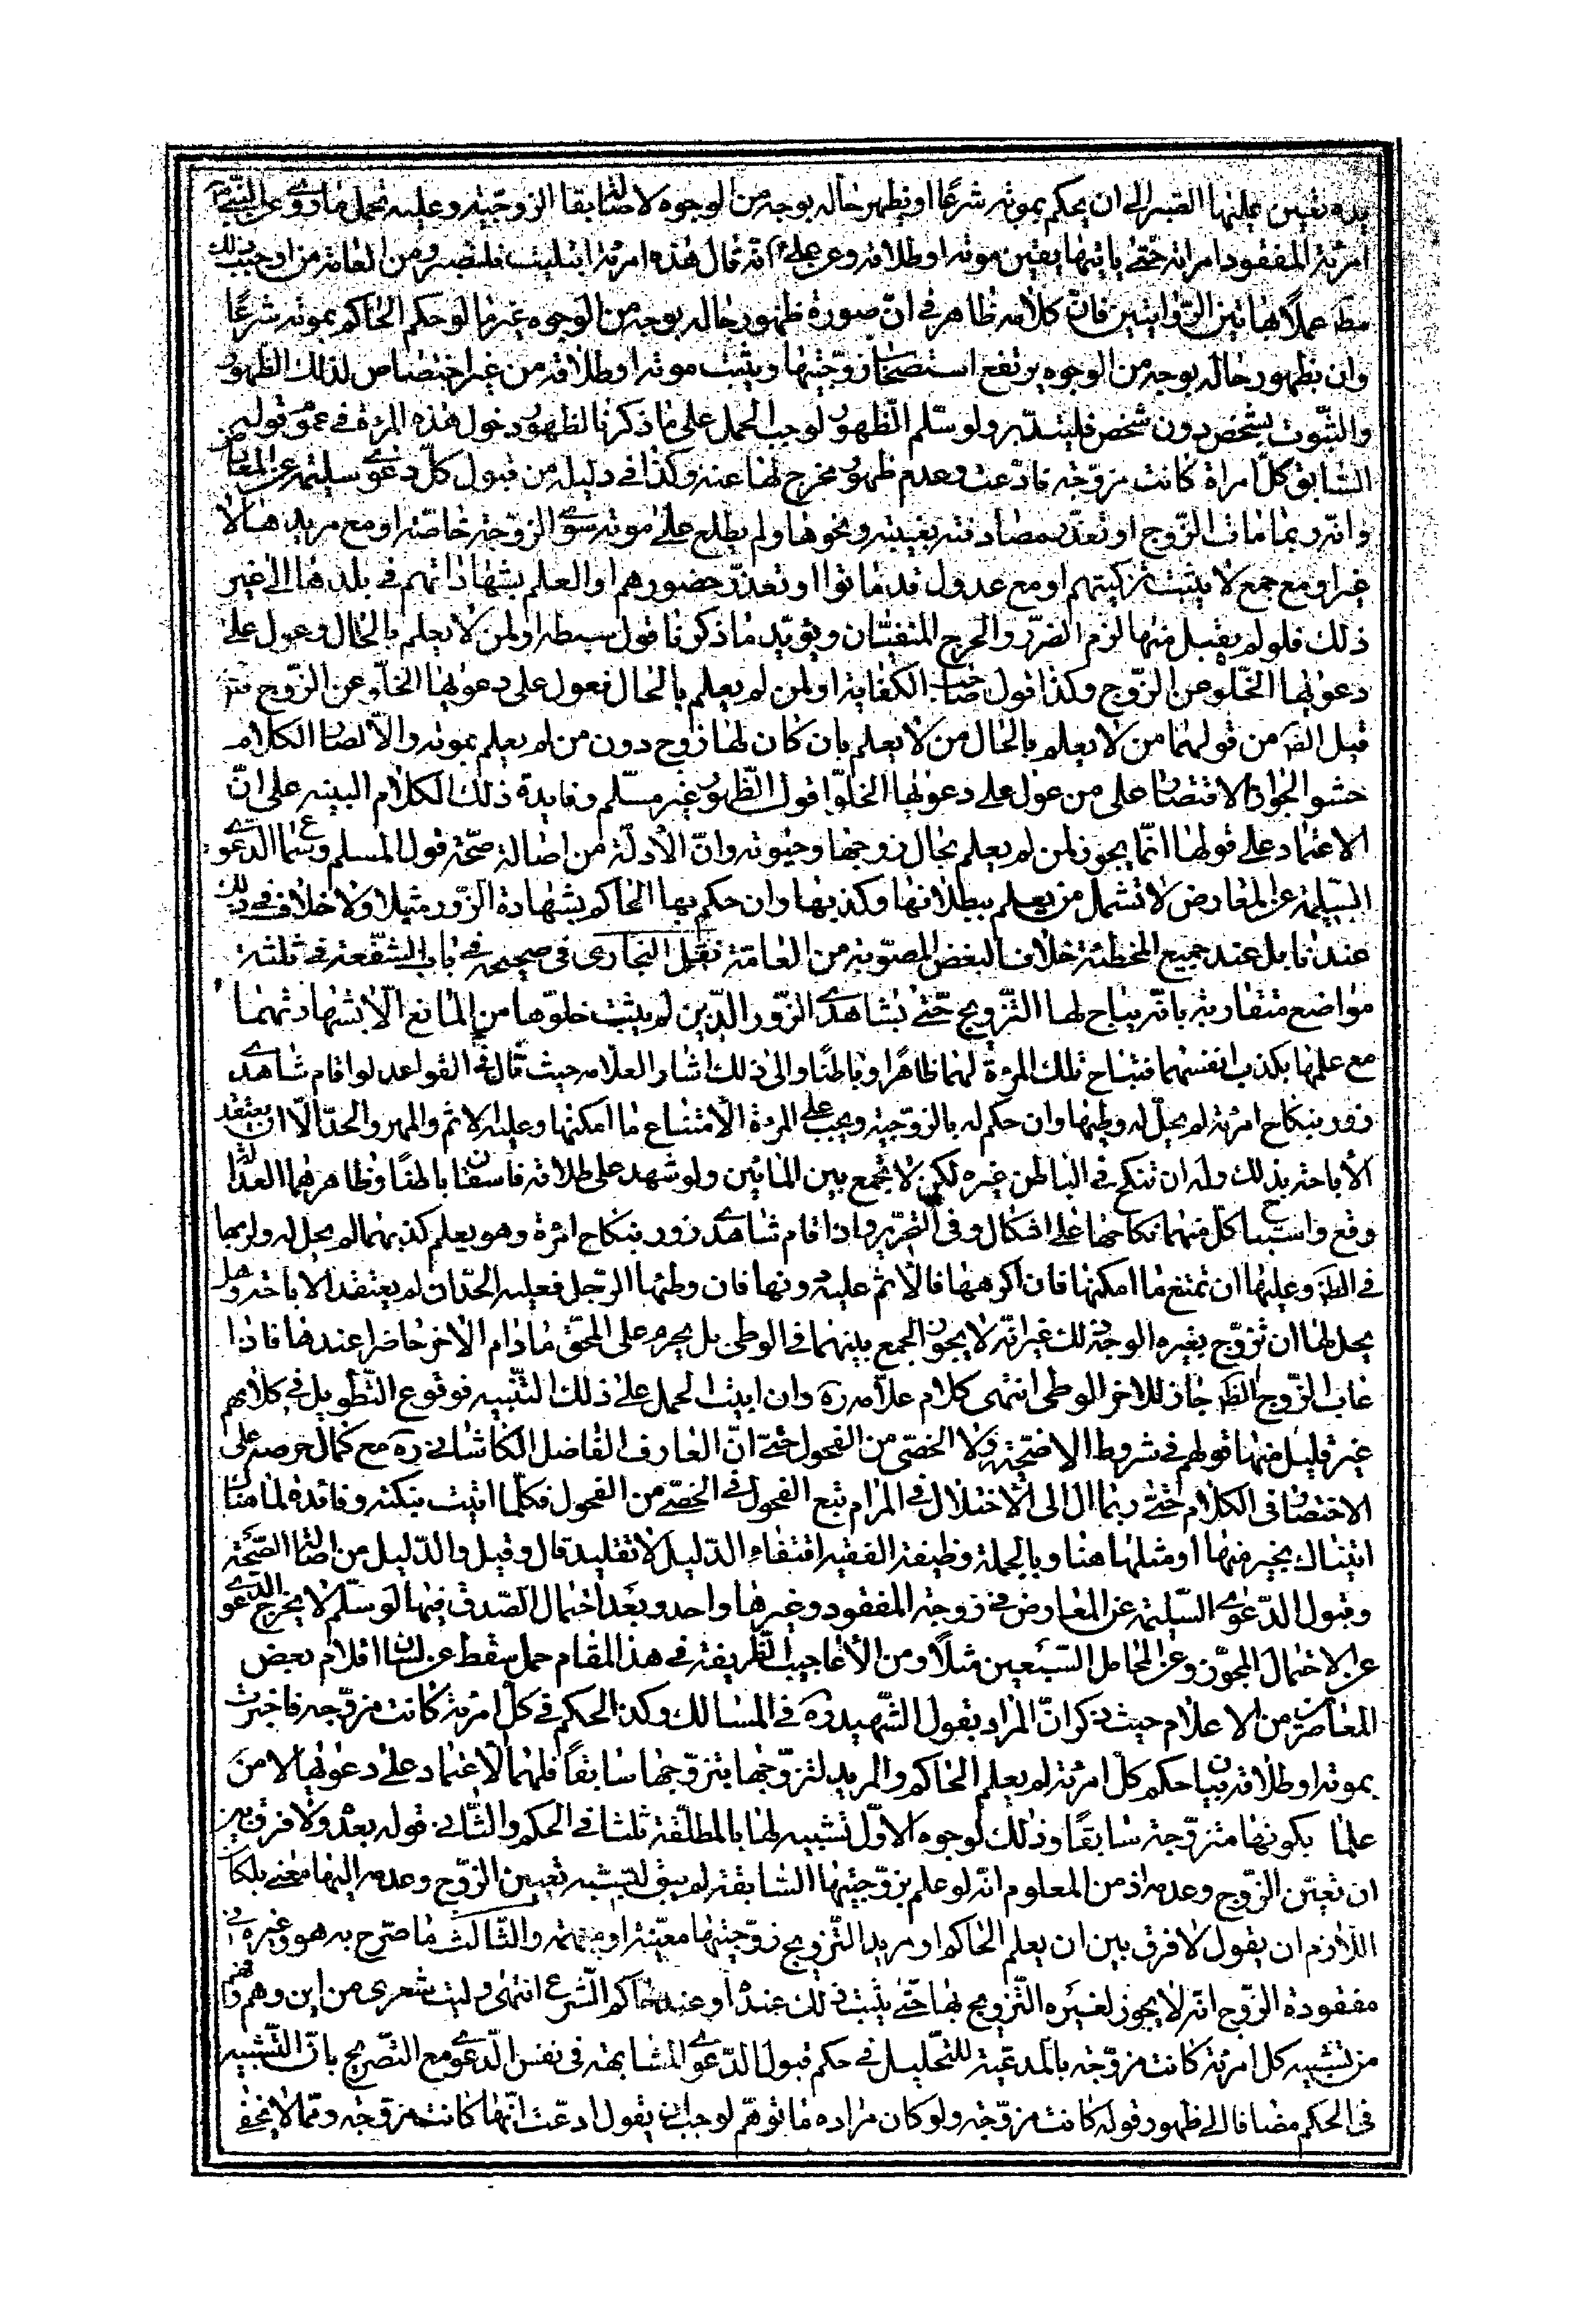 يده تعين عليها الصبر الى ان يحكم بموته شرعًا او يظهر حاله بوجه من الوجوه لاصالة بقا الزوجيّة وعليه يحمل ما روى عن النبي ص
امرئة المفقود امراته حتّى ياتيها يقين موته او طلاقه وعن على ع انه قال هذه امرئة ابتليت فلتصبر ومن العامة من اوجب ذلك
مط عملًا بهاتين الروايتين فانّ كلامه ظاهر فى انّ صورة ظهور حاله بوجه من الوجوه غير ما لو حكم الحاكم بموته شرعًا
وان بظهور حاله بوجه من الوجوه يرتفع استصحاب زوجيّتها ويثبت موته او طلاقه من غير اختصاص لذلك الظهور
والثّبوت بشخص دون شخص فليتدبّر ولو سلّم الظهور لوجب الحمل على ما ذكرنا لظهور دخول هذه المرئة فى عموم قوله
السّابق كلّ امراة كانت مزوّجة فادّعت وعدم ظهور مخرج لها عنه وكذا فى دليله من قبول كلّ دعوى سليمة عن المعارض
وانّه ربما مات الزّوج او تعذّر مصادفته بغيبته ونحوها ولم يطلع على موته سوى الزوجة خاصّة او مع مريدها لا
غير او مع جمع لا يثبت تزكيتهم او مع عدول قد ماتوا او تعذّر حضورهم او العلم بشهاداتهم فى بلدها الى غير
ذلك فلو لم يقبل منها لزم الضرر والحرج المنفيّان ويؤيّد ما ذكرنا قول سبطه او لمن لا يعلم بالحال وعول على
دعوٰيها الخلّو عن الزّوج وكذا قول صاحب الكفاية او لمن لم يعلم بالحال فعول على دعويها الخلّو عن الزّوج
قيل الظ من قولهما من لا يعلم بالحال من لا يعلم بان كان لها زوج دون من لم يعلم بموته والّا لصار الكلام
حشوا لجواز الاقتصار على من عول على دعوٰيها الخلوّ اقول الظهور غير مسلّم وفايدة ذلك الكلام البينه على انّ
الاعتماد على قولها انّما يجوز لمن لم يعلم بحال زوجها وحيوته وانّ الادلّة من اصالة صحّة قول المسلم وسماع الدّعوى
السّليمة عن المعارض لا تشمل من يعلم ببطلانها وكذبها وان حكم بها الحاكم بشهادة الزّور مثلا ولا خلاف فى ذلك
عندنا بل عند جميع المخطئة خلافا لبعض المصوّبة من العامّة نقل البخارى فى صحيحه فى باب الشفعة فى ثلثة
مواضع متقاربة بانّه يباح لها التّزويج حتّى بشاهدى الزّور الذين لم يثبت خلوّها من المانع الّا بشهادتهما
مع علمها بكذب انفسهما فتباح تلك المرئة لهما ظاهرًا وباطنًا والى ذلك اشار العلامه حيث قال فى القواعد لو اقام شاهدى
زور بنكاح امرئة لم يحلّ له وطيها وان حكم له بالزوجيّة ويجب على المرئة الامتناع ما امكنها وعليه الاثم والمهر والحدّ الّا ان يعتقد
الاباحة بذلك وله ان تنكح فى الباطن غيره لكن لا يجمع بين المائين ولو شهد على طلاقه فاسقان باطنًا وظاهرهما العدالة
وقع واستباح كلّ منهما نكاحها على اشكال وفى التحرير واذا قام شاهدى زور بنكاح امرئة وهو يعلم كذبهما لم يحل له
فى الظ وعليها ان تمتنع ما امكنها فان اكرهها فالاثم عليه دونها فان وطئها الرّجل فعليه الحدّ ان لم يعتقد الاباحة وهل
يحل لها ان تزوّج بغيره الوجه ذلك غير انّه لا يجوز الجمع بينهما فى الوطى بل يحرم على المحقّ ما دام الاخر حاضرا عندها فاذا
غاب الزّوج الظ جاز للاخر الوطى انتهى كلام علامه ره وان ابيت الحمل على ذلك التّنبيه فوقوع التّطويل فى كلامهم
غير قليل منها قولهم فى شروط الاضحية ولا الخصّى من الفحول حتّى انّ العارف الفاضل الكاشانى ره مع كمال حرصه على
الاختصار فى الكلام حتّى ربما ال الى الاختلال فى المرام تبع الفحول فى الخصّى من الفحول فكلّما اثبت بنكتة وفائدة لما هناك
اتيناك بخير منها او مثلها هنا وبالجملة وظيفة الفقيه اقتفاء الدّليل لا تقليد قال وقيل والدّليل من اصالة الصّحّة
وقبول الدّعوى السّليمة عن المعارض فى زوجة المفقود وغيرها واحد وبعد احتمال الصّدق فيها لو سلّم لا يخرج الدّعوى
عن الاحتمال المجوّز وعن المحامل السّبعين مثلًا ومن الاعاجيب الظّريفة فى هذا المقام حمل سقط عن لسان اقلام بعض
المعاصرين من الاعلام حيث ذكر انّ المراد بقول الشّهيد ره فى المسالك وكذا الحكم فى كلّ امرئة كانت مزوّجة فاخبرت
بموته او طلاقه بيان حكم كلّ امرئة لم يعلم الحاكم والمريد لتزوّجها بتزوّجها سابقاً فلهما الاعتماد على دعوٰيها لا من
علما بكونها متزوّجة سابقًا وذلك لوجوه الاوّل تشبيه لها بالمطلّقة ثلثا فى الحكم والثانى قوله بعد ولا فرق بين
ان تعيّن الزّوج وعدمه اذ من المعلوم انّه لو علم بزوّجيّتها السّابقة لم يبق لنسبة تعيين الزّوج وعدمه اليها معنى بل كان
اللّازم ان يقول لا فرق بين ان يعلم الحاكم او مريد التّزويج زوّجيّتها معيّنة او مبهمة والثّالث ما صرّح به هو وغيره فى
مفقودة الزّوج انّه لا يجوز لغيره التّزويج لها حتّى يثبت ذلك عنده او عند حاكم الشّرع انتهى وليت شعرى من اين وهم
من تشبيه كل امرئة كانت مزوّجة بالمدعيّة للتّحليل فى حكم قبول الدّعوى المشابهة فى نفس الدّعوى مع التصريح بانّ التّشبيه
فى الحكم مضافا الى ظهور قوله كانت مزوّجة ولو كان مراده ما توهّم لوجب ان يقول ادعّت انّها كانت مزوّجة وممّا لا يخفى